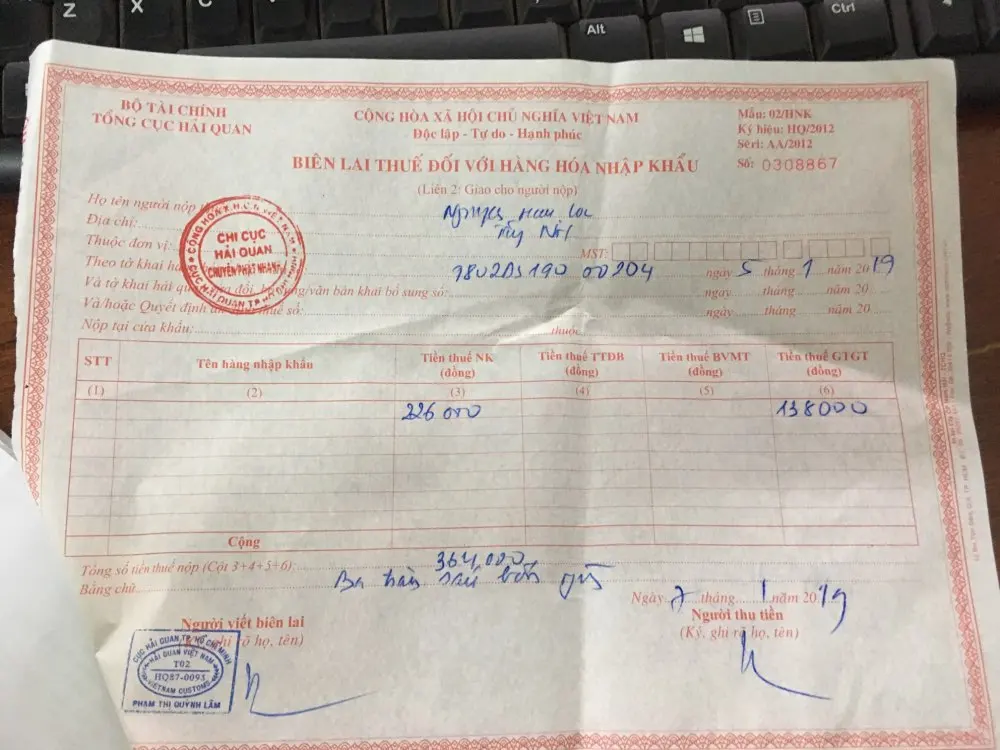 Alt
Ctrl
Z
X
C
BỘ TÀI CHÍNH
TỔNG CỤC HẢI QUAN
CỘNG HÒA XÃ HỘI CHỦ NGHĨA VIỆT NAM
Độc lập - Tự do - Hạnh phúc
Mẫu: 02/HNK
Ký hiệu: HQ/2012
Sêri: AA/2012
Số: 0308867
BIÊN LAI THUẾ ĐỐI VỚI HÀNG HÓA NHẬP KHẨU
(Liên 2: Giao cho người nộp)
Họ tên người nộp
Địa chỉ:
Thuộc đơn vị: MST:
Theo tờ khai 00204 ngày 5 tháng 1 năm 2019
Và tờ khai hải văn bản khai bổ sung số: ngày tháng năm 20
Và/hoặc Quyết định thuế số: ngày tháng năm 20
Nộp tại cửa khẩu: thuộc
CỘNG HÒA X.H.C.N VIỆT NAM
CHI CỤC
HẢI QUAN
CHUYỂN PHÁT NHANH
CỤC HẢI QUAN TP. HỒ CHÍ MINH
STT Tên hàng nhập khẩu Tiền thuế NK (đồng) Tiền thuế TTĐB (đồng) Tiền thuế BVMT (đồng) Tiền thuế GTGT (đồng)
(1) (2) (3) (4) (5) (6)
226 000 138000
Cộng
Tổng số tiền thuế nộp (Cột 3+4+5+6): 364,000
Bằng chữ Ba trăm sáu bốn
Ngày 7 tháng 1 năm 2019
Người viết biên lai Người thu tiền
(Ký, ghi rõ họ, tên) (Ký, ghi rõ họ, tên)
CỤC HẢI QUAN TP. HỒ CHÍ MINH
HẢI QUAN VIỆT NAM
T02
HQ87-0093
VIETNAM CUSTOMS
PHẠM THỊ QUỲNH LÂM